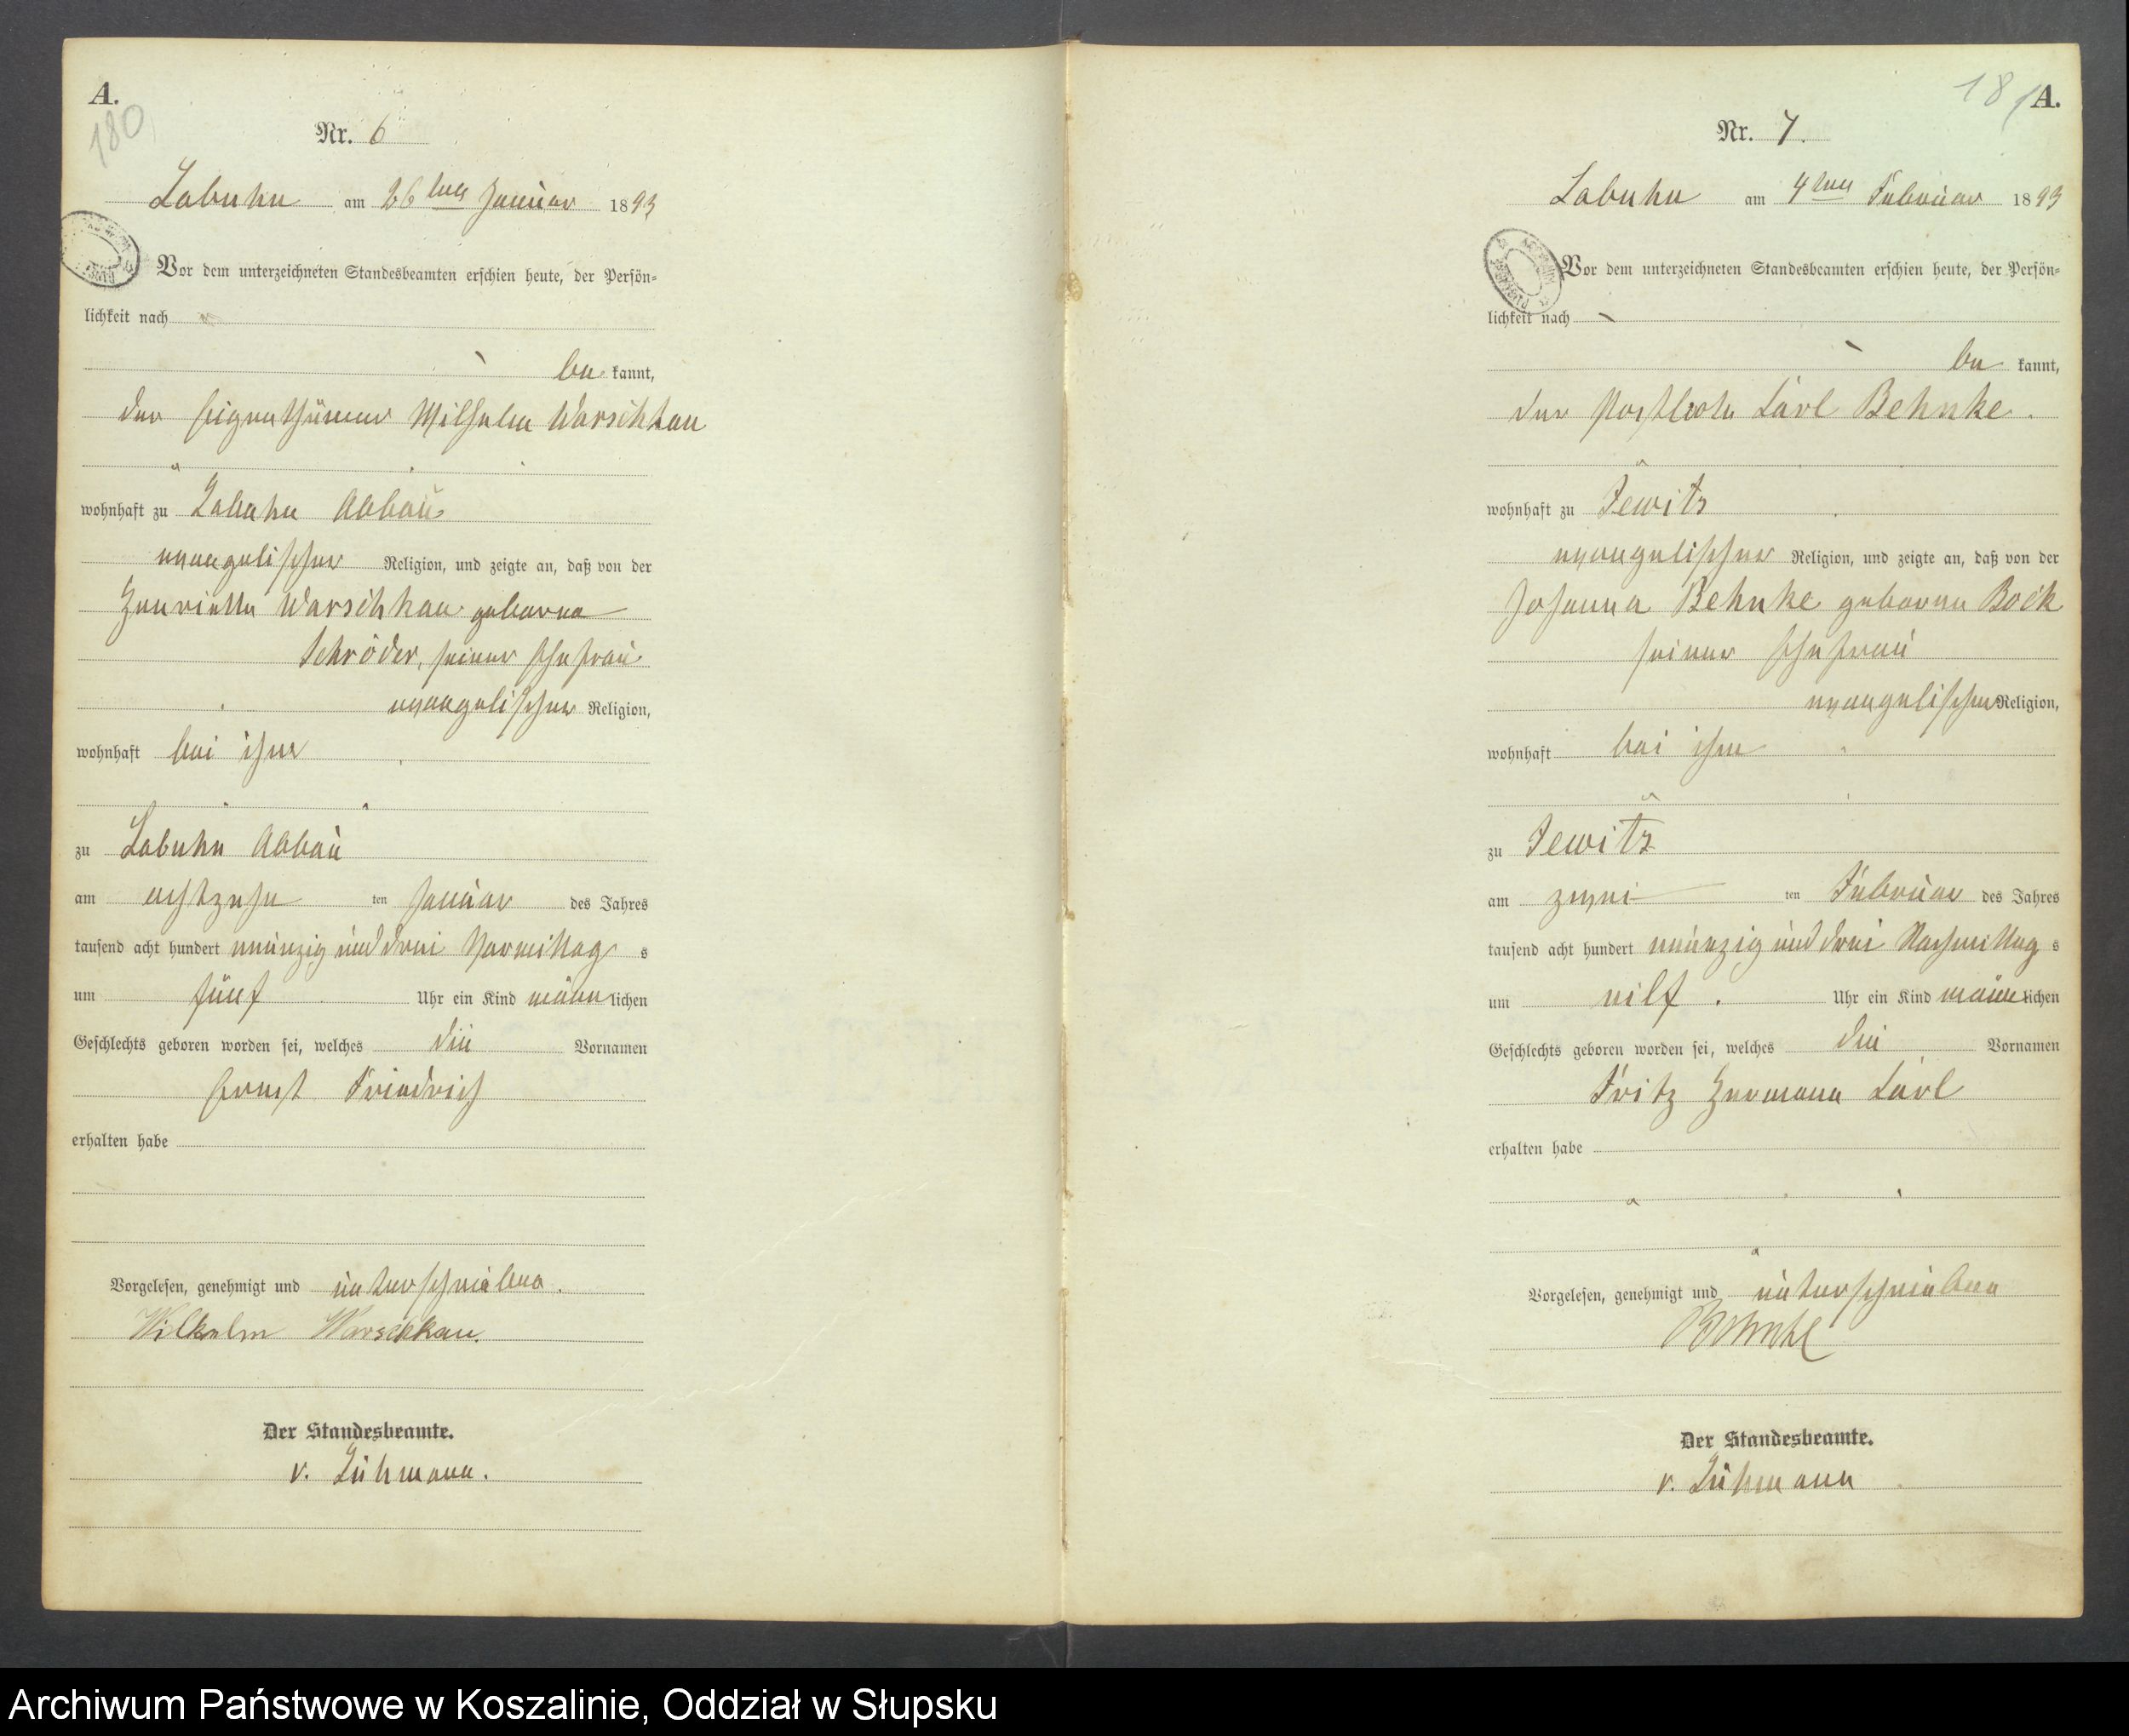 A.
180
Nr. 6
Labuhn am 26ten Januar 1893
Vor dem unterzeichneten Standesbeamten erschien heute, der Persön-
lichkeit nach
be kannt,
der Eigenthümer Wilhelm Warschkau
wohnhaft zu Labuhn Abbau
evangelischer Religion, und zeigte an, daß von der
Henriette Warschkau geborne
Schröder, seiner Ehefrau
evangelischer Religion,
wohnhaft bei ihm
zu Labuhn Abbau
am achtzehn ten Januar des Jahres
tausend acht hundert neunzig und drei Vormittag s
um fünf Uhr ein Kind männ lichen
Geschlechts geboren worden sei, welches die Vornamen
Ernst Friedrich
erhalten habe
Vorgelesen, genehmigt und unterschrieben.
Wilhelm Warschkau.
Der Standesbeamte.
v. Zühmann.
A.
181
Nr. 7.
Labuhn am 4ten Februar 1893
Vor dem unterzeichneten Standesbeamten erschien heute, der Persön-
lichkeit nach
be kannt,
der Postbote Carl Behnke.
wohnhaft zu Jewitz
evangelischer Religion, und zeigte an, daß von der
Johanna Behnke geborne Bock
seiner Ehefrau
evangelischer Religion,
wohnhaft bei ihm
zu Jewitz
am zwei ten Februar des Jahres
tausend acht hundert neunzig und drei Nachmittag s
um elf Uhr ein Kind männ lichen
Geschlechts geboren worden sei, welches die Vornamen
Fritz Hermann Carl
erhalten habe
Vorgelesen, genehmigt und unterschrieben
Behnke
Der Standesbeamte.
v. Zühmann
Archiwum Państwowe w Koszalinie, Oddział w Słupsku